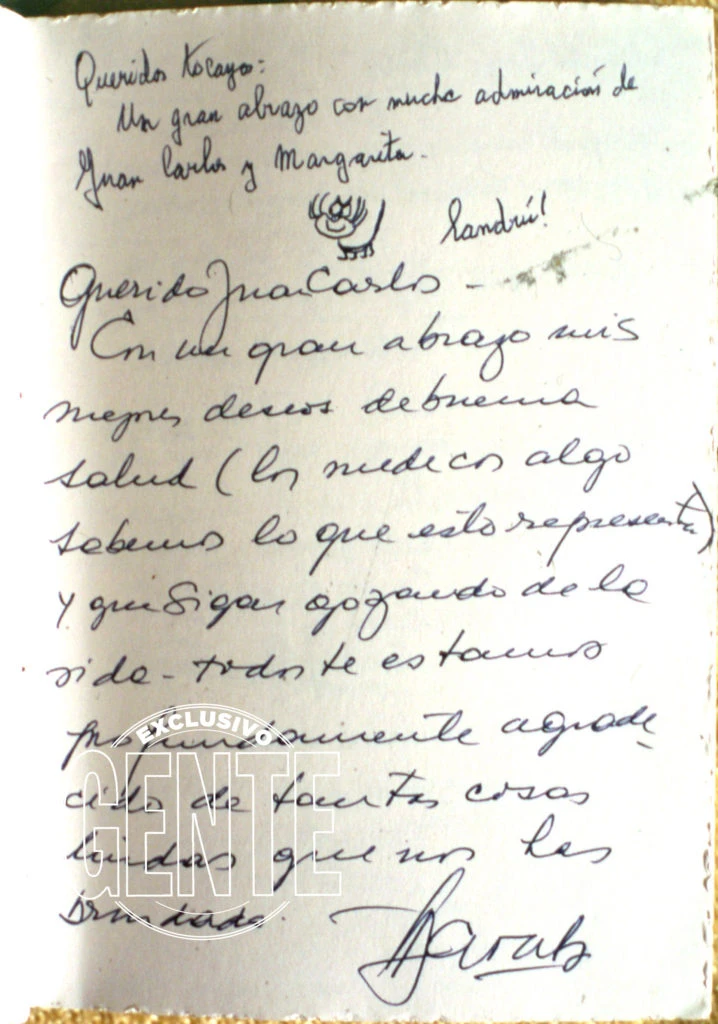 Queridos tocayos:
Un gran abrazo con mucha admiración de
Juan Carlos y Margarita.
Landrú!
Querido Juan Carlos -
Con un gran abrazo mis
mejores deseos de buena
salud (los medicos algo
sabemos lo que esto representa)
y que sigas gozando de la
vida - todos te estamos
profundamente agrade
cidos de tantas cosas
lindas que nos has
brindado.
EXCLUSIVO
GENTE